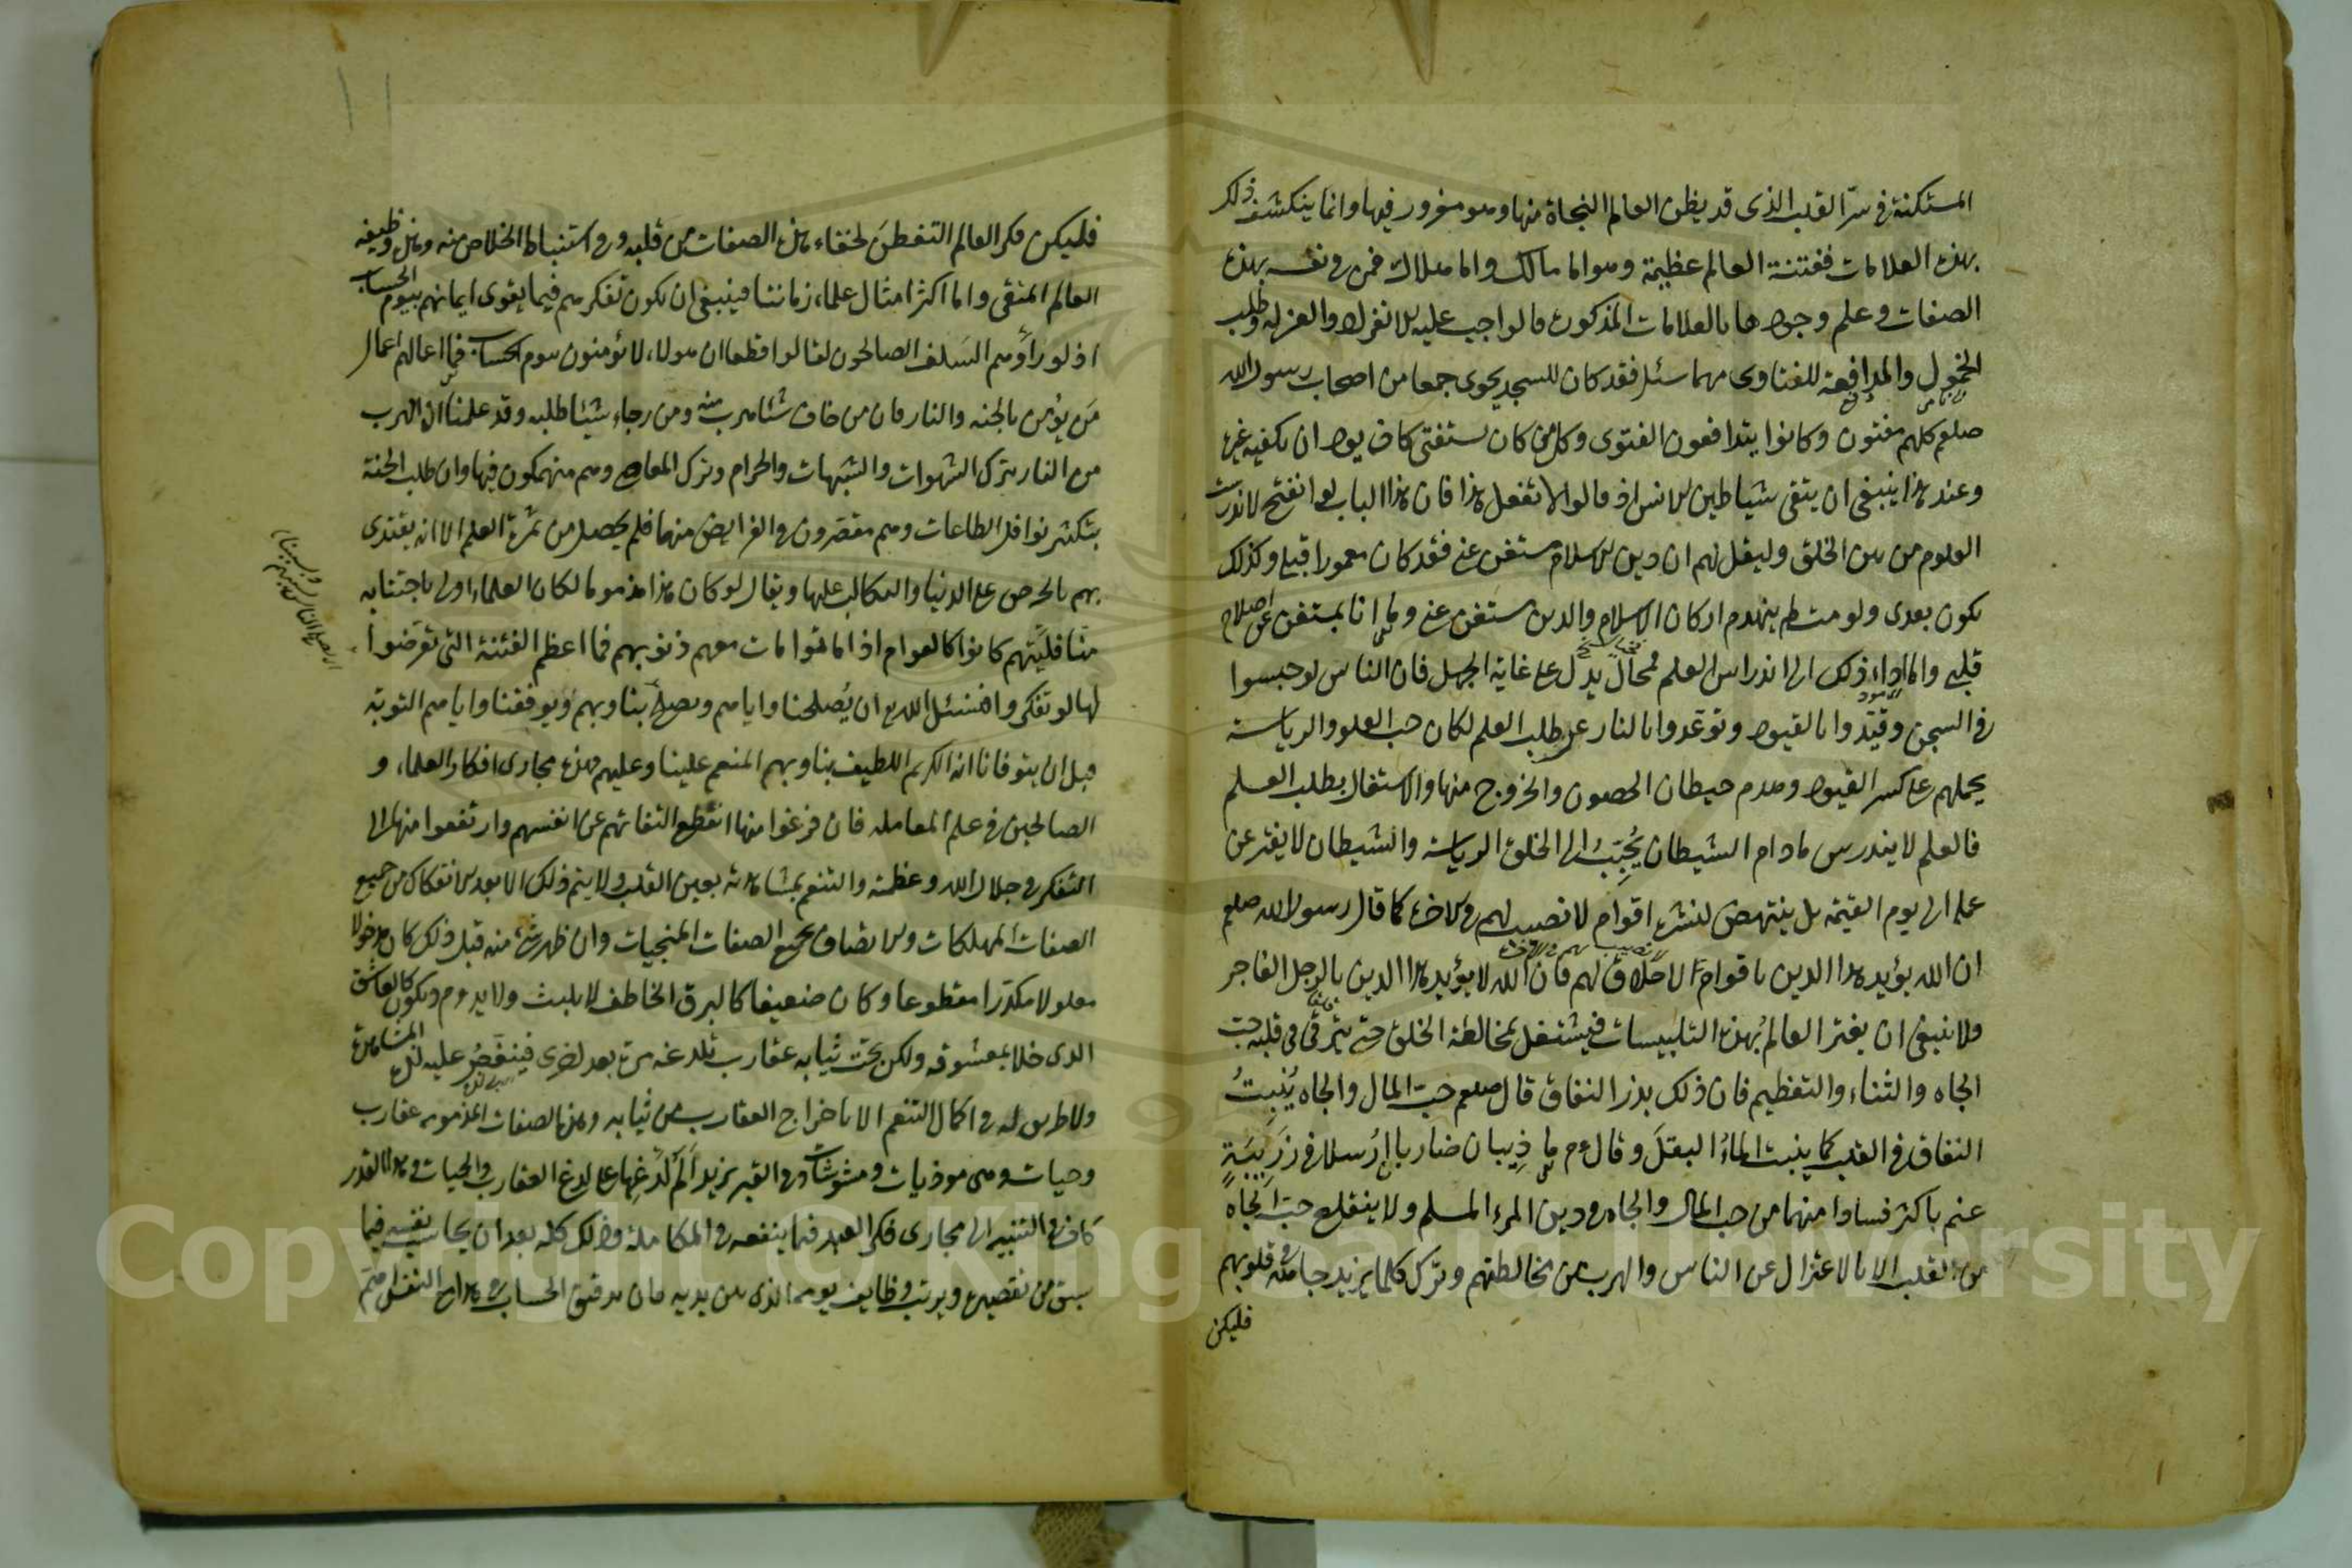 المستكنة في سرّ القلب الذى قد يظن العالم النجاة منها وهو مغرور فيها وانما ينكشف ذلك
بهذه العلامات ففتنة العالم عظيمة وهو اما مالك واما هالك فمن فى نفسه بهذه
الصفات وعلم وجودها بالعلامات المذكورة فالواجب عليه الانفراد والعزلة وطلب
الخمول والمدافعة للفتاوى مهما سئل فقد كان المسجد يحوى جمعا من اصحاب رسول الله
صلعم كلهم مفتون وكانوا يتدافعون الفتوى وكل من كان يستفتى كان يود ان يكفيه غيره
وعند هذا ينبغى ان يتقى شياطين الانس اذ قالوا لا تفعل هذا فان هذا الباب لو انفتح لاندرست
العلوم من بين الخلق وليقل لهم ان دين الاسلام مستغن عنى فقد كان معمورا قبلى وكذلك
يكون بعدى ولو مت لم ينهدم اركان الاسلام والدين مستغن عنى وما انا بمستغن عن اصلاح
قلبى واما اداء ذلك الى اندراس العلم فمحال يدل على غاية الجهل فان الناس لو حبسوا
فى السجن وقيّدوا بالقيود وتوعدوا بالنار على طلب العلم لكان حب العلو والرياسة
يحملهم على كسر القيود وهدم حيطان الحصون والخروج منها والاشتغال بطلب العلم
فالعلم لا يندرس مادام الشيطان يُحبّبُ الى الخلق الرياسة والشيطان لا يفتر عن
عمله الى يوم القيمة بل ينتهض لنشره اقوام لا نصيب لهم فى الاخرة كما قال رسول الله صلعم
ان الله يؤيد هذا الدين باقوام لا خلاق لهم فان الله لا يؤيد هذا الدين بالرجل الفاجر
ولا ينبغى ان يغتر العالم بهذه التلبيسات فيشتغل بمخالطة الخلق حتى يترقى فى قلبه حبّ
الجاه والثناء والتعظيم فان ذلك بذر النفاق قال صلعم حبّ المال والجاه يُنبتُ
النفاق فى القلب كما ينبت الماءُ البقلَ وقال عم ما ذيبان ضاريا ارسلا فى زريبة
غنم باكثر فسادا منهما من حب المال والجاه فى دين المرء المسلم ولا ينقلع حب الجاه
من القلب الا بالاعتزال عن الناس والهرب من مخالطتهم وترك كلما يزيد جاهه فى قلوبهم
فليكن
فليكن فكر العالم التفطن لخفاء هذه الصفات من قلبه وفى استنباط الخلاص منه وهذه وظيفة
العالم المتقى واما اكثر امثال علماء زماننا فينبغى ان يكون تفكرهم فيما يقوى ايمانهم بيوم الحساب
اذ لو رأوهم السلف الصالحون لقالوا قطعا ان هولاء لا يؤمنون بيوم الحساب فما اعمالهم اعمال
مَن يؤمن بالجنة والنار فان من خاف شئا هرب منه ومن رجاء شيئا طلبه وقد علمنا ان الهرب
من النار بترك الشهوات والشبهات والحرام وترك المعاصى وهم منهمكون فيها وان طلب الجنة
بتكثير نوافل الطاعات وهم مقصّرون فى الفرايض منها فلم يحصل من ثمرة العلم الا انه يقتدى
بهم بالحرص على الدنيا والتكالب عليها ويقال لو كان هذا مذموما لكان العلماء اولى باجتنابه
منّا فليتهم كانوا كالعوام اذا ماتوا مات معهم ذنوبهم فما اعظم الفتنة التى تعرّضوا
لها لو تفكروا فنسئل الله ان يُصلحنا واياهم ويصلح بنا وبهم ويوفقنا واياهم التوبة
قبل ان يتوفانا انه الكريم اللطيف بنا وبهم المنعم علينا وعليهم فهذه مجارى افكار العلماء و
الصالحين فى علم المعاملة فان فرغوا منها انقطع التفاتهم عن انفسهم وارتفعوا منها الى
التفكر فى جلال الله وعظمته والتنعم بمشاهدته بعين القلب ولا يتم ذلك الا بعد الانفكاك من جميع
الصفات المهلكات والاتصاف بجميع الصفات المنجيات وان ظهر شئ منه قبل ذلك كان مدخولا
معلولا مكدّرا مقطوعا وكان ضعيفا كالبرق الخاطف لا يلبث ولا يدوم ويكون كالعاشق
الذى خلا بمعشوقه ولكن تحت ثيابه عقارب تلدغه مرة بعد اخرى فينغّصُ عليه لذة المشاهدة
ولا طريق له فى اكمال التنعم الا باخراج العقارب من ثيابه وهذه الصفات المذمومة عقارب
وحيات وهى موذيات ومشوشات وفى القبر يزيد ألم لدغها على لدغ العقارب والحيات فهذا القدر
كاف فى التنبيه الى مجارى فكر العبد فيما ينفعه فى المكاملة وذلك كله بعد ان يحاسب نفسه فيما
سبق من تقصيره ويرتب وظايف يومه الذى بين يديه فان تدقيق الحساب فى هذا مع النفس اهمّ
Copyright © King Saud University